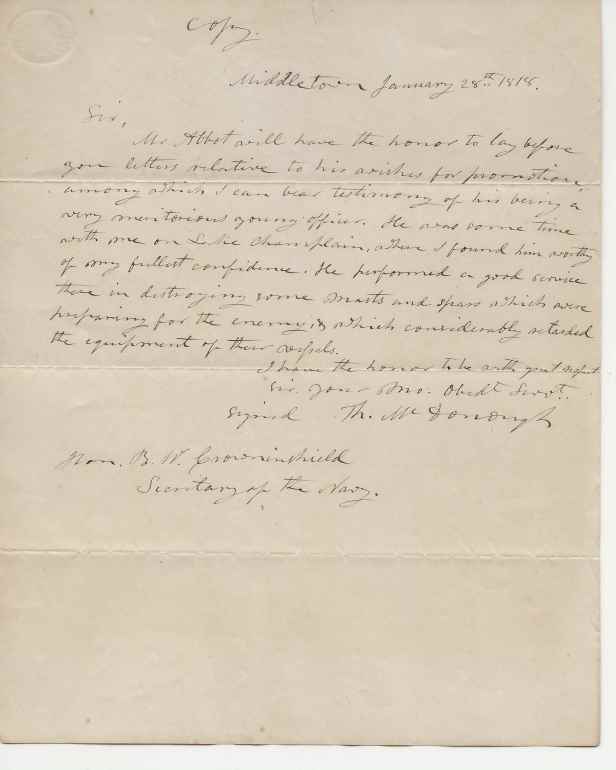 Copy.
Middletown January 28th 1818.
Sir,
Mr. Abbot will have the honor to lay before
you letters relative to his wishes for promotion,
among which I can bear testimony of his being a
very meritorious young officer. He was some time
with me on Lake Champlain, where I found him worthy
of my fullest confidence. He performed a good service
there in destroying some masts and spars which were
preparing for the enemy, & which considerably retarded
the equipment of their vessels.
I have the honor to be with great respect
Sir. Your Mo. Obedt. Servt.
Signed Th. McDonough
Hon. B. W. Crowninshield
Secretary of the Navy.